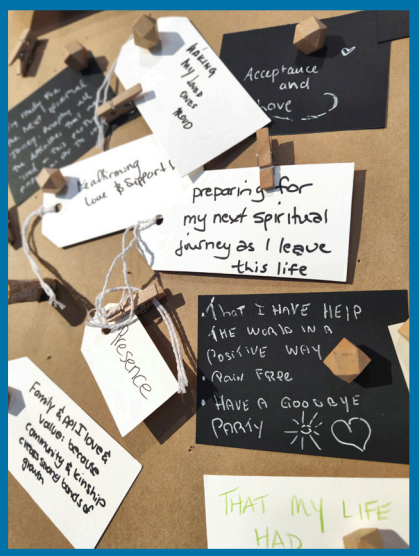 MAKING
MY LOVED
ONES
PROUD
Acceptance
and
Love
Reaffirming
Love & Support!
preparing for
my next spiritual
journey as I leave
this life
Presence
• THAT I HAVE HELP
THE WORLD IN A
POSITIVE WAY
• PAIN FREE
• HAVE A GOODBYE
PARTY
Family &
love &
value: because
community & kinship
bonds of
growth
THAT MY LIFE
HAD